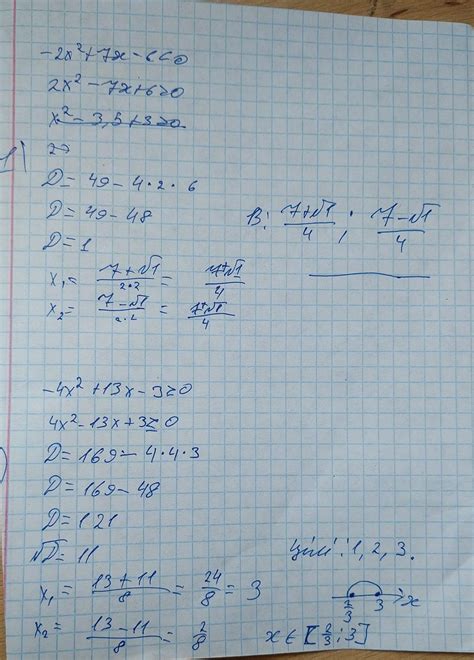 -2x²+7x-6<0
2x²-7x+6>0
x²-3,5+3>0
1)
D=49-4·2·6
D=49-48
D=1
x₁=(7+√1)/(2·2)=(7+√1)/4
x₂=(7-√1)/(2·2)=(7+√1)/4
В: (7+√1)/4; (7-√1)/4
-4x²+13x-3≥0
4x²-13x+3≤0
D=169-4·4·3
D=169-48
D=121
√D=11
x₁=(13+11)/8=24/8=3
x₂=(13-11)/8=2/8
Цілі: 1, 2, 3.
2/3 3 x
x∈[2/3;3]